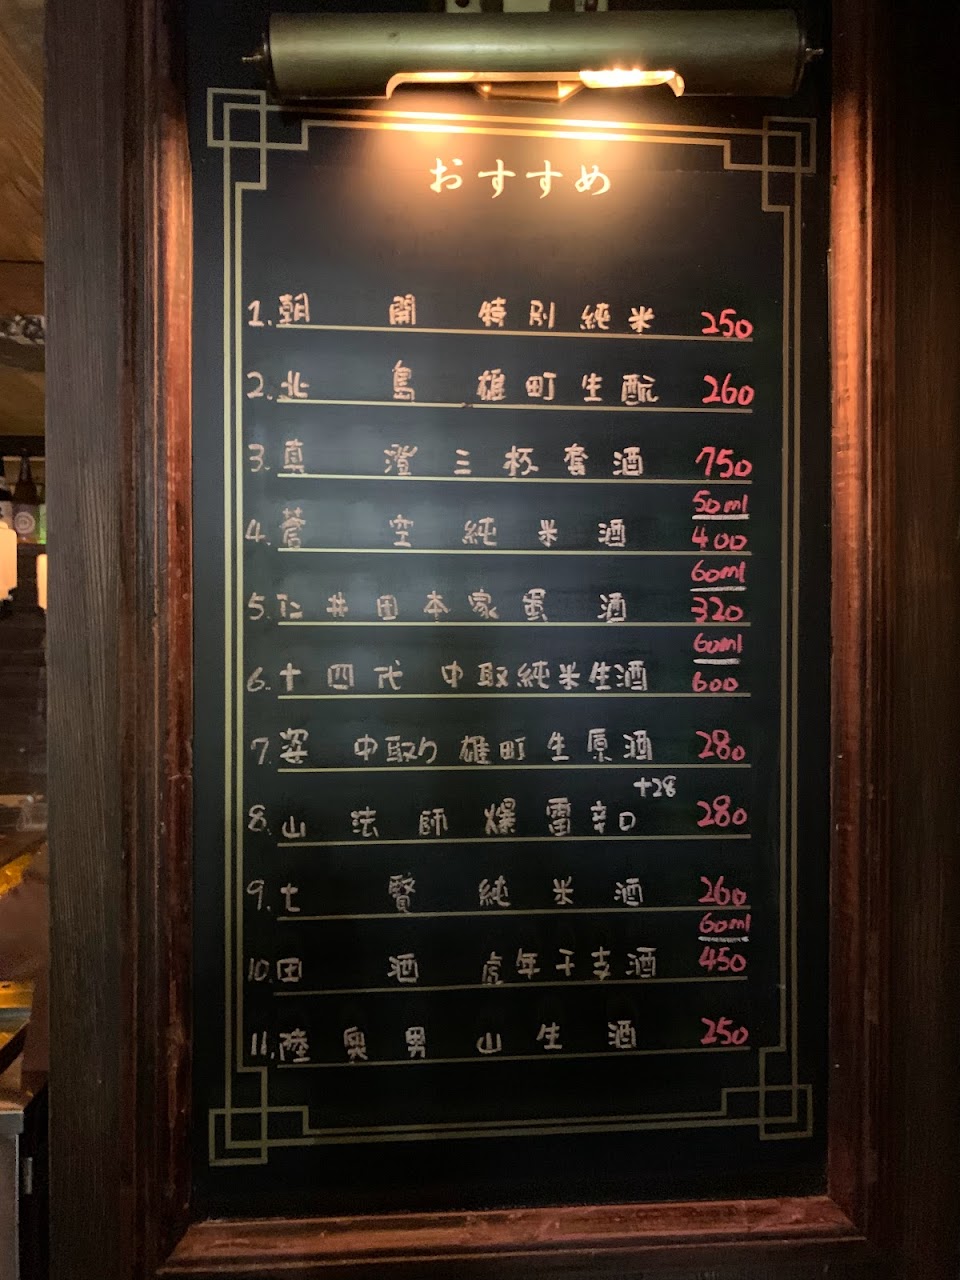 おすすめ
1. 朝開 特別純米 250
2. 北島 雄町生酛 260
3. 真澄三杯套酒 750
50ml
4. 蒼空純米酒 400
60ml
5. 仁井田本家蛋酒 320
60ml
6. 十四代 中取純米生酒 600
7. 姿 中取り雄町生原酒 280
+28
8. 山法師爆雷辛口 280
9. 七賢 純米酒 260
60ml
10. 田酒 虎年干支酒 450
11. 陸奥男山生酒 250